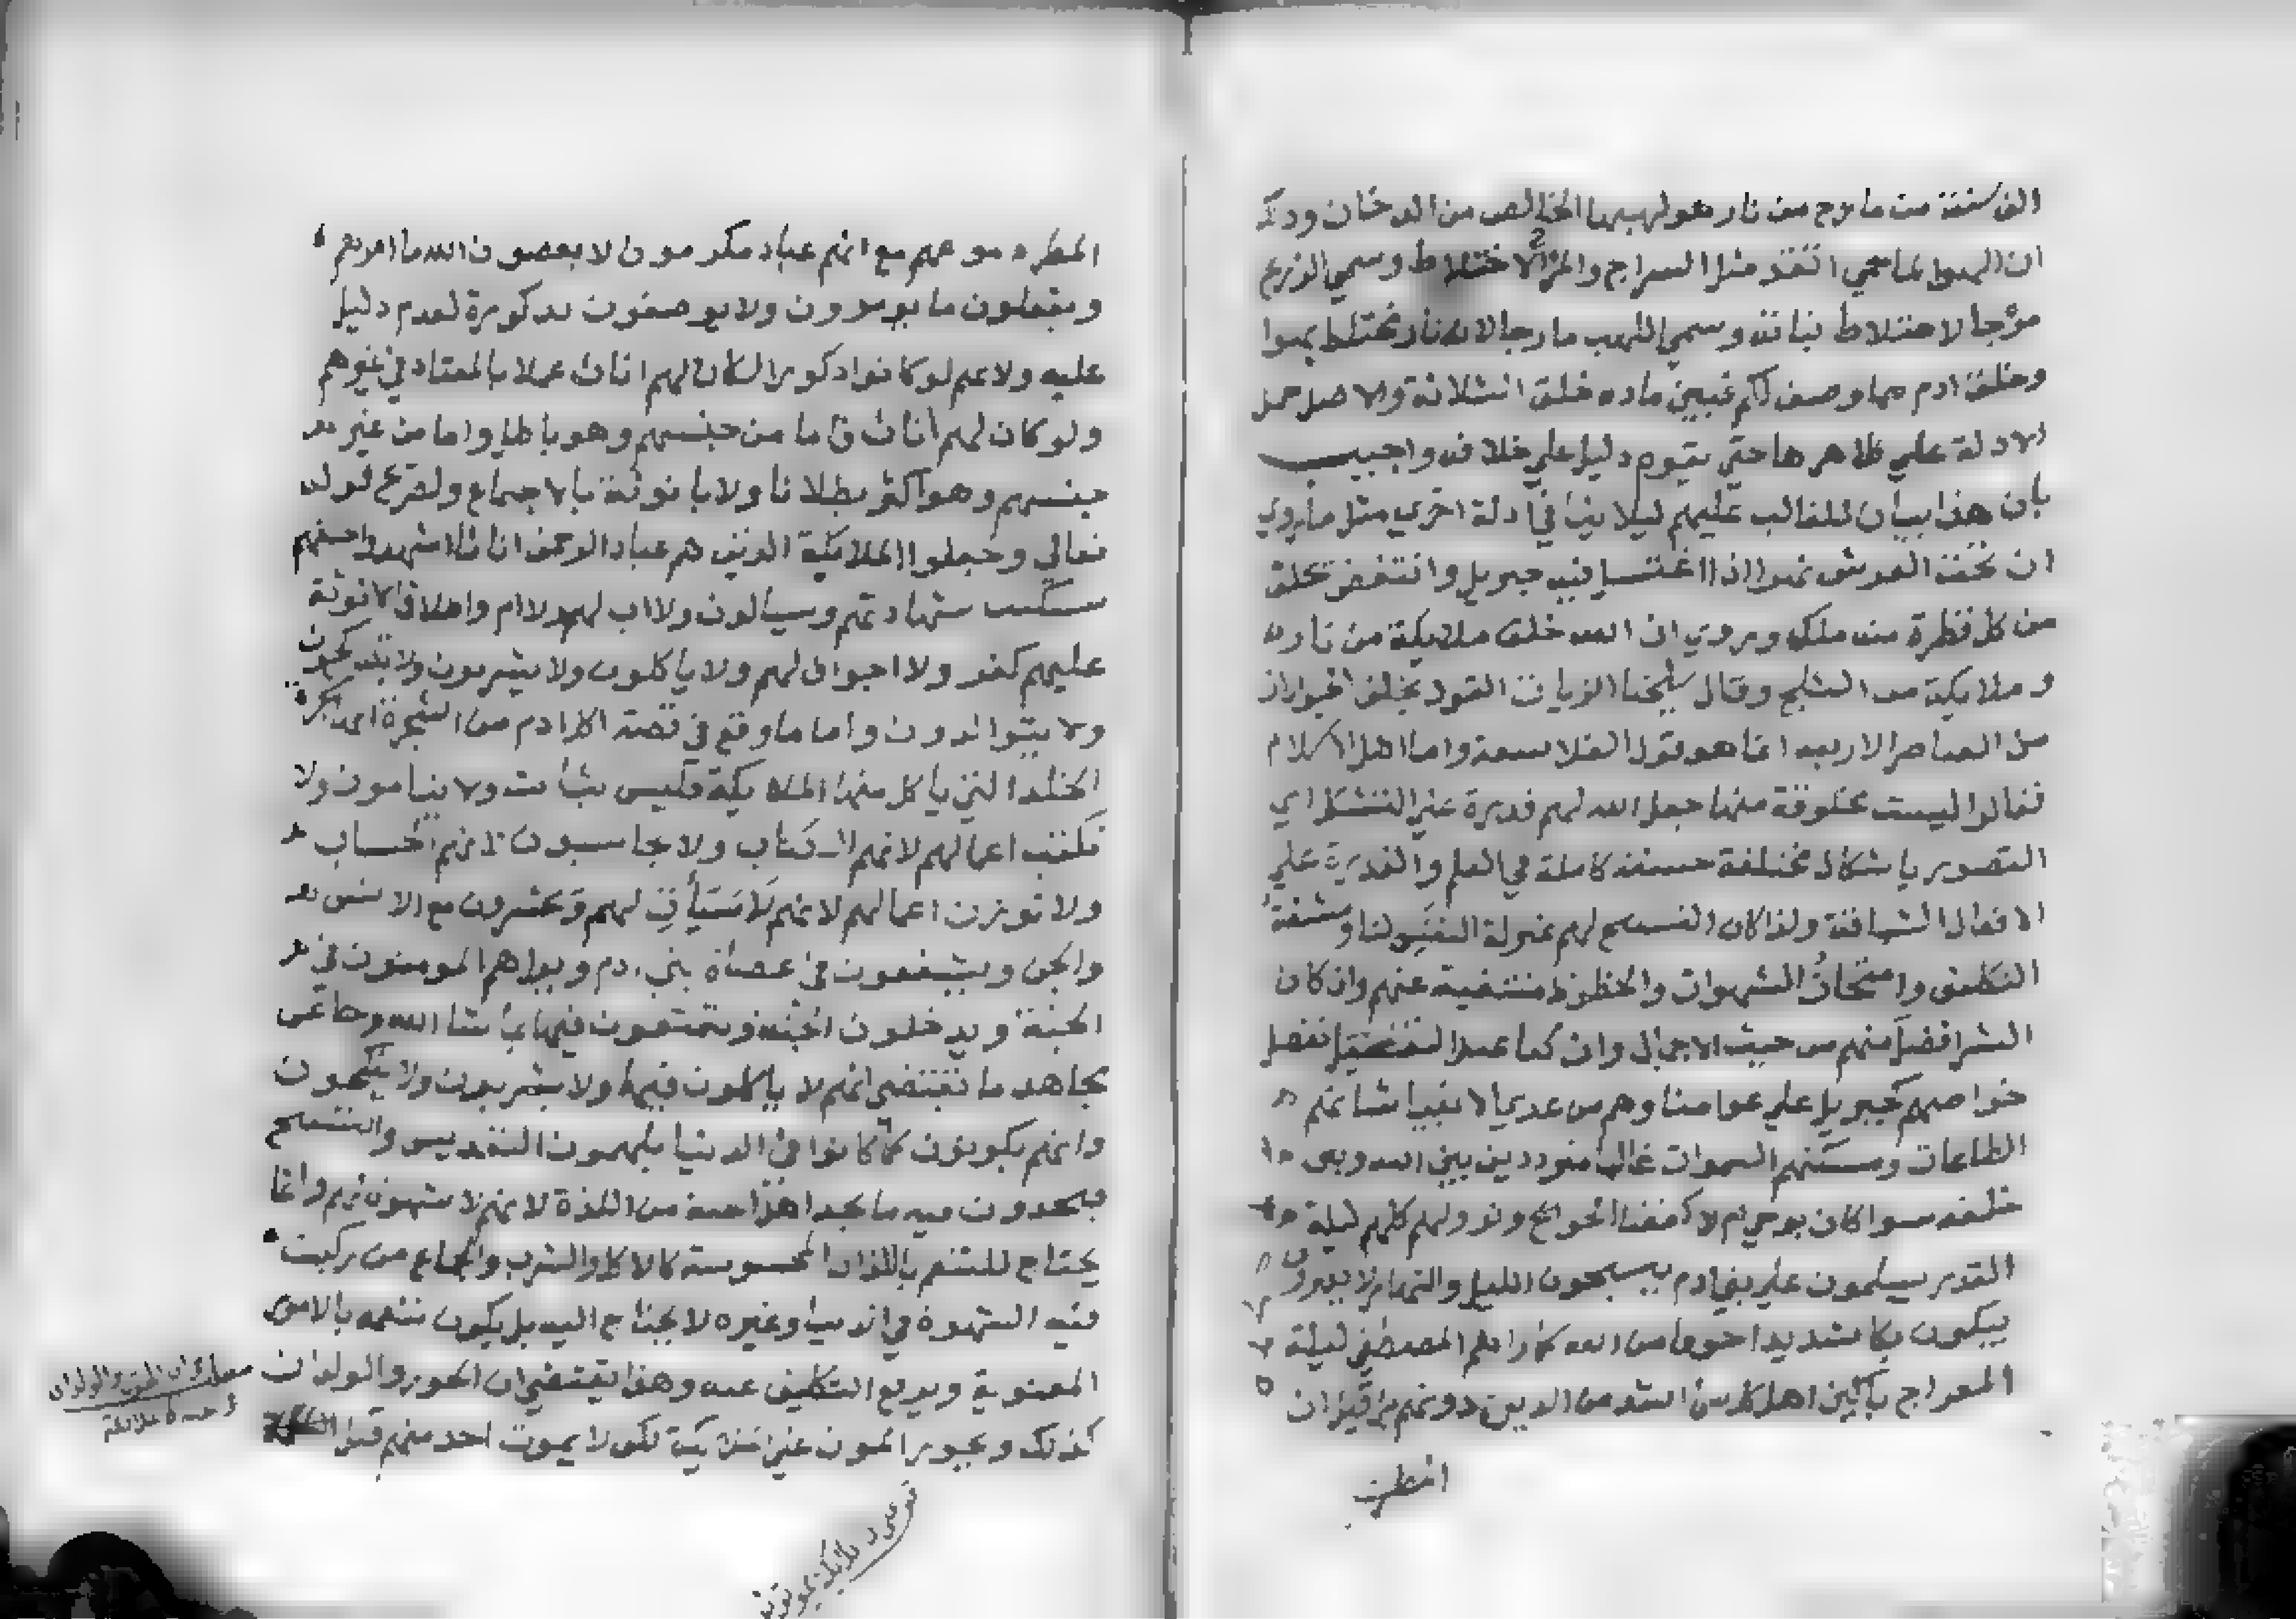 الف سنة من مارج من نار هو لهيبها الخالص من الدخان وذكر
ان الهوى لما حمي اتقد مثل السراج والمزج الاختلاط وسمي الزرع
مرجا لاختلاط نباته وسمي اللهب مارجا لانه نار تختلط بهوا
وخلق ادم مما وصف لكم فبين ماده خلق الثلاثة والاصل حمل
الادلة علي ظاهرها حتي يقوم دليل علي خلافه واجيب
بان هذا بيان للغالب عليهم ليلا ينافي ادلة اخري مثل ما روي
ان تحت العرش نهرا اذا اغتسل فيه جبريل وانتفض تخلق
من كل قطرة منه ملك وروي ان الله خلق ملايكة من نار
و ملايكة من الثلج وقال شيخنا الزيات القول بخلق الحيوان
من العناصر الاربعه انما هو قول الفلاسفة واما اهل الاسلام
فقالوا ليست مخلوقة منها جعل الله لهم قدرة علي التشكل اي
التصور باشكال مختلفة حسنة كاملة في العلم والقدرة علي
الافعال الشاقة ولذا كان التسبيح لهم بمنزلة النفس لنا ومشقة
التكليف وامتحان الشهوات والحظوظ منتفية عنهم وان كان
البشر افضل منهم من حيث الاجمال وان كنا عند التفضيل نفضل
خواصهم كجبريل علي عوامنا وهم من عدي الانبيا شانهم
الطاعات ومسكنهم السموات غالبا مترددين بين الله وبين
خلقه سوا كان بوحي ام لا كقضا الحوايج ونزولهم كلهم ليلة
القدر يسلمون علي بني ادم يسبحون الليل والنهار لا يفترون
يبكون بكا شديدا خوفا من الله كما راهم المصطفي ليلة
المعراج باكين اهل كل سما اشد من الذين دونهم من قبل ان
المطر
المطره موعهم مع انهم عباد مكرمون لا يعصون الله ما امرهم
ويفعلون ما يومرون ولا يوصفون بذكورة لعدم دليل
عليه ولانهم لو كانوا ذكورا لكان لهم اناث عملا بالمعتاد في غيرهم
ولو كان لهم اناث فاما من جنسهم وهو باطل واما من غير
جنسهم وهو اكثر بطلانا ولا بانوثة بالاجماع ولصريح قوله
تعالي وجعلوا الملايكة الذين هم عباد الرحمن اناثا اشهدوا خلقهم
ستكتب شهادتهم ويسالون ولا اب لهم ولا ام واطلاق الانوثة
عليهم كفر ولا اجواف لهم ولا ياكلون ولا يشربون ولا ينكحون
ولا يتوالدون واما ما وقع في قصة اكل ادم من الشجرة انها شجرة
الخلد التي ياكل منها الملايكة فليس بثابت ولا ينامون ولا
تكتب اعمالهم لانهم الكتاب ولا يحاسبون لانهم الحساب
ولا توزن اعمالهم لانهم لا سيات لهم ويحشرون مع الانس
والجن ويشفعون في عصاة بني ادم ويراهم المومنون في
الجنة ويدخلون الجنة ويتمتعون فيها بما شا الله وجا عن
مجاهد ما يقتضي انهم لا ياكلون فيها ولا يشربون ولا ينكحون
وانهم يكونون كما كانوا في الدنيا يلهمون التقديس والتسبيح
فيجدون فيه ما يجد اهل الجنة من اللذة لانهم لا شهوة لهم وانما
يحتاج للتنعم باللذات المحسوسة كالاكل والشرب والجماع من ركبت
فيه الشهوة في الدنيا وغيره لا يحتاج اليه بل يكون تنعمه بالامور
المعنوية ويرفع التكليف عنه وهذا يقتضي ان الحور والولدان
كذلك ويجوز الموت علي الملايكة لكن لا يموت احد منهم قبل